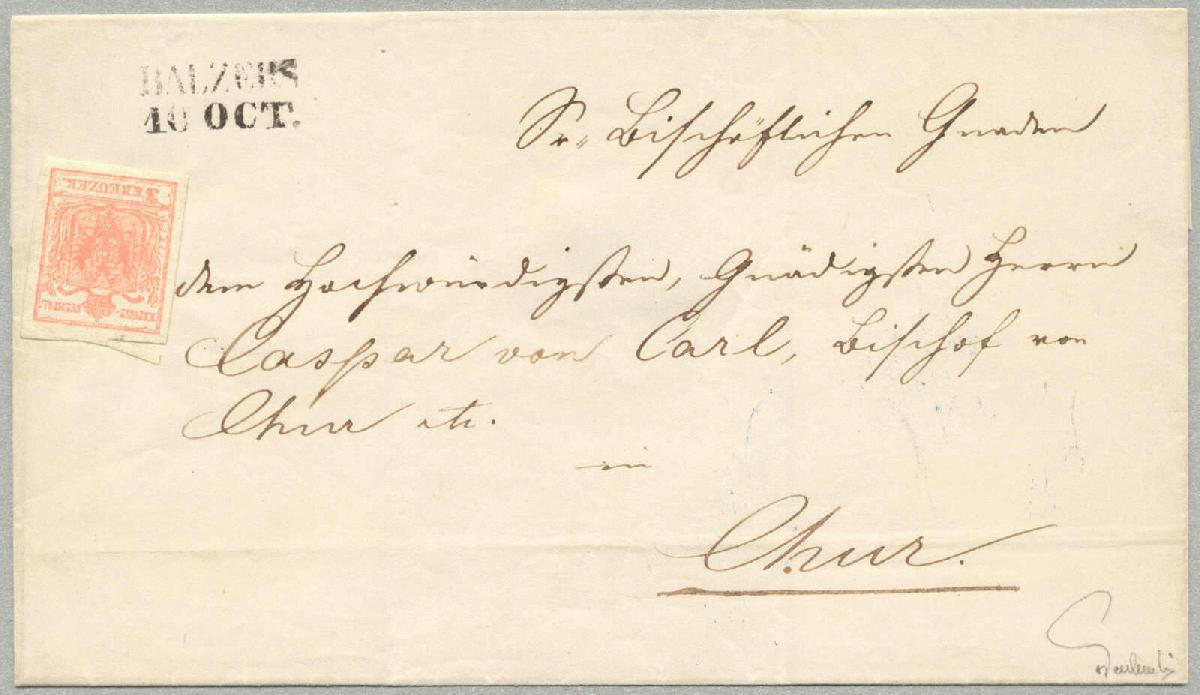 BALZERS
10 OCT.
Sr. Bischöflichen Gnaden
3 KREUZER.
dem Hochwürdigsten, Gnädigsten Herrn
Caspar von Carl, Bischof von
Chur etc.
in
Chur.